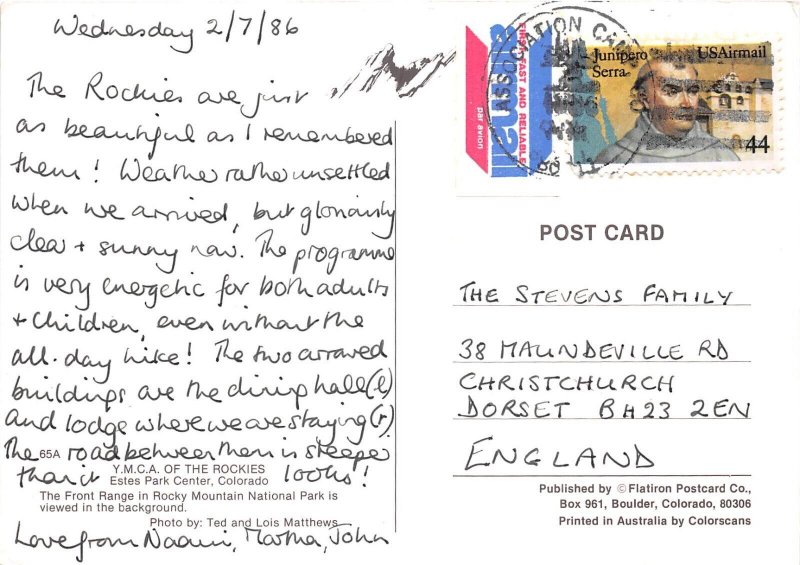 Wednesday 2/7/86
The Rockies are just
as beautiful as I remembered
them! Weather rather unsettled
when we arrived, but gloriously
clear + sunny now. The programme
is very energetic for both adults
+ children, even without the
all-day hike! The two arrowed
buildings are the dining hall (l)
and lodge where we are staying (r).
The road between them is steeper
than it looks!
Love from Naomi, Martha, John
65A
Y.M.C.A. OF THE ROCKIES
Estes Park Center, Colorado
The Front Range in Rocky Mountain National Park is
viewed in the background.
Photo by: Ted and Lois Matthews
FIRST FAST AND RELIABLE
par avion
ASSOCIATION CAMP
Junipero
Serra
USAirmail
44
POST CARD
THE STEVENS FAMILY
38 MAUNDEVILLE RD
CHRISTCHURCH
DORSET BH23 2EN
ENGLAND
Published by © Flatiron Postcard Co.,
Box 961, Boulder, Colorado, 80306
Printed in Australia by Colorscans